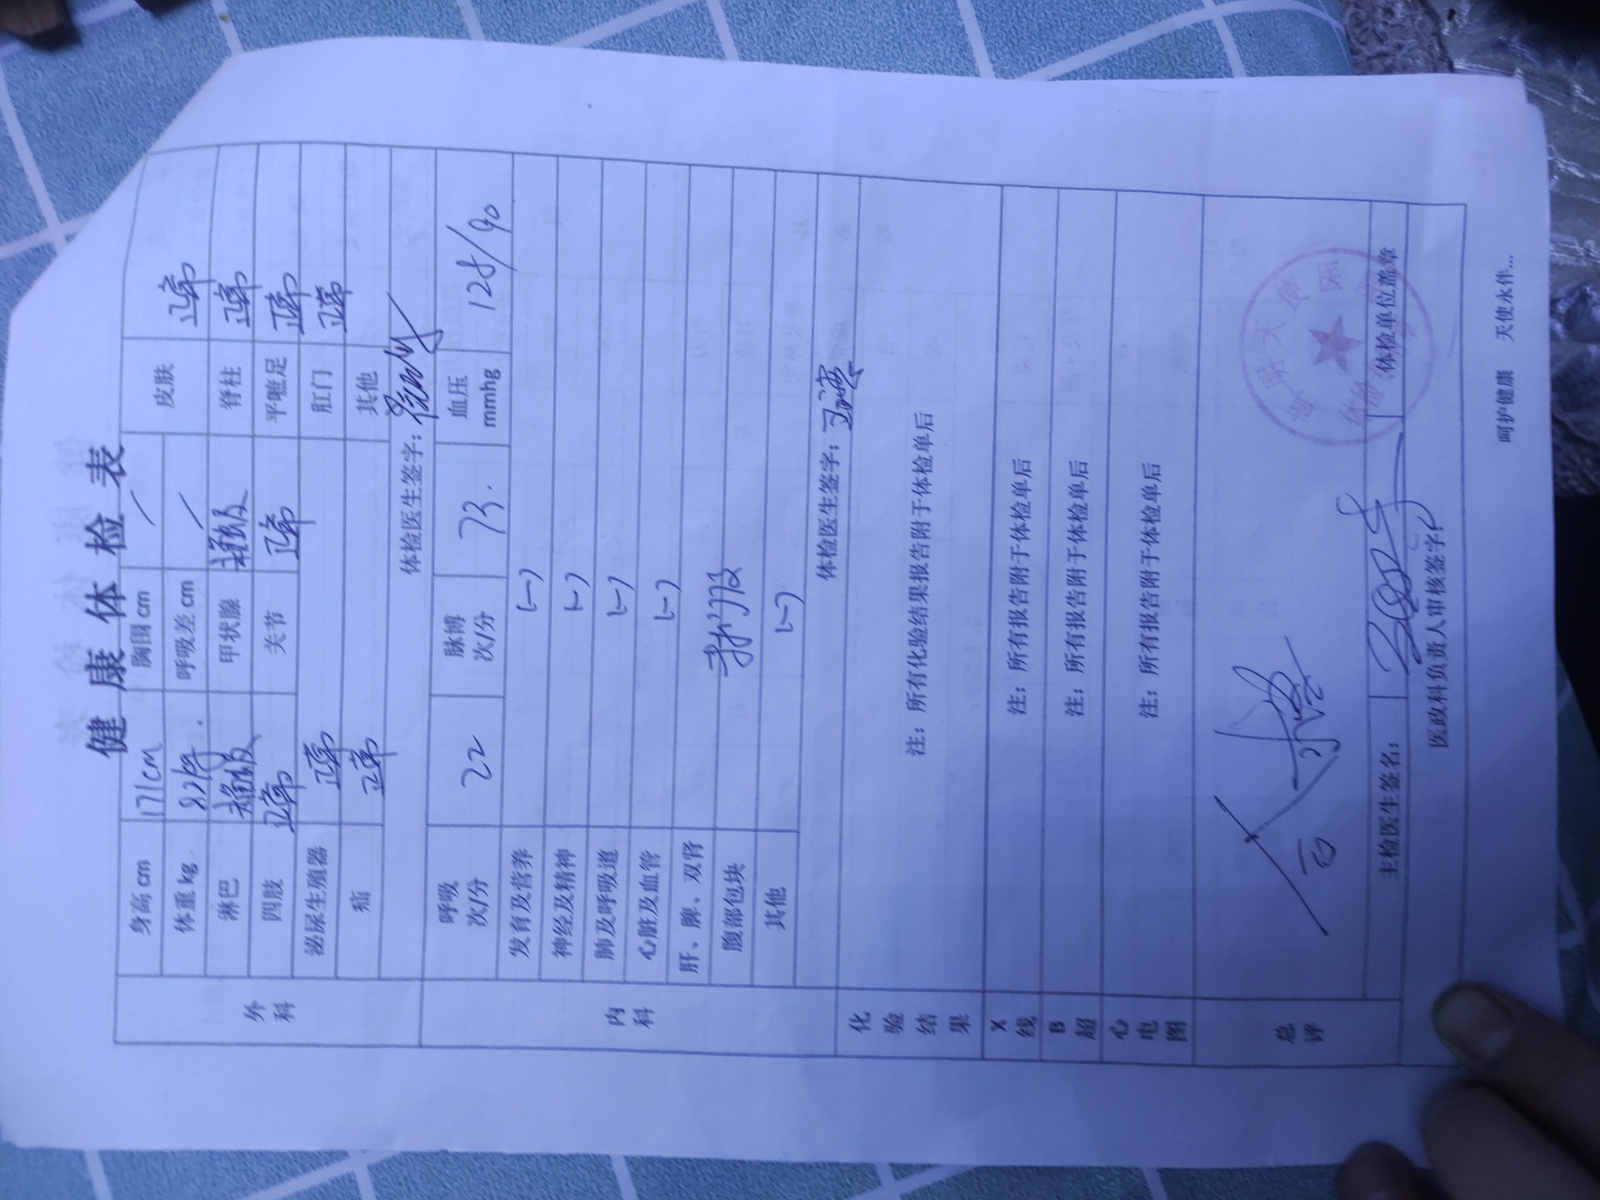 健康体检表
外科
身高cm 171cm 胸围cm / 皮肤 正常
体重kg 82kg. 呼吸差cm / 脊柱 正常
淋巴 甲状腺 平蹠足 正常
四肢 正常 关节 正常 肛门 正常
泌尿生殖器 正常 其他
疝 正常
体检医生签字:
内科
呼吸次/分 22 脉博次/分 73. 血压mmhg 128/90
发育及营养 (-)
神经及精神 (-)
肺及呼吸道 (-)
心脏及血管 (-)
肝、脾、双肾
腹部包块
其他 (-)
体检医生签字:
化验结果 注:所有化验结果报告附于体检单后
X线 注:所有报告附于体检单后
B超 注:所有报告附于体检单后
心电图 注:所有报告附于体检单后
总评 合格
主检医生签名: 体检单位盖章
医政科负责人审核签字:
呵护健康 天使永伴...